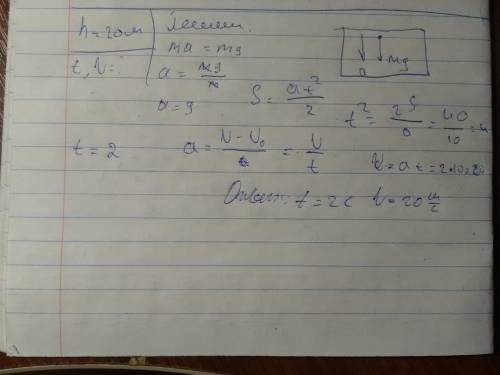 h=20м
t, V=?
Решение.
ma = mg
a = mg/m
a = g
S = at²/2
t² = 2S/a = 40/10 = 4
t = 2
a = V-V₀/t = V/t
V = at = 2·10=20
Ответ: t = 2с V=20 м/с
a mg